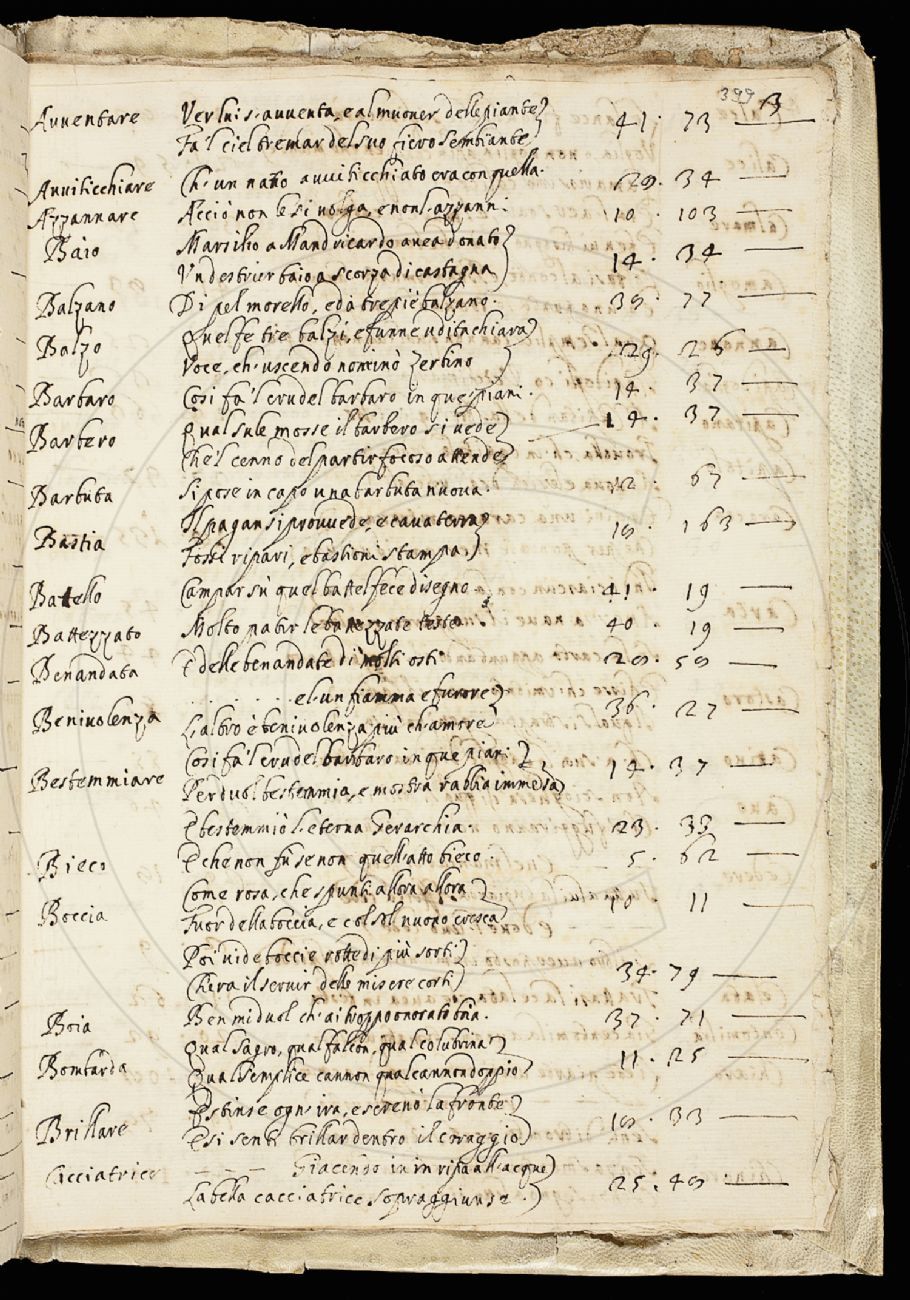 399 3
Avventare Ver lui s'avventa, e al muover delle piante
Fa 'l ciel tremar del suo fiero sembiante 41. 73
Aviticchiare Ch'un nastro aviticchiato era con quella. 29. 34
Azzannare Acciò non le si volga, e non l'azzanni. 10. 103
Baio Marsilio a Mandricardo avea donato
Un destrier baio a scorza di castagna 14. 34
Balzano Di pel morello, ed à tre piè balzano. 39. 77
Balzo Quel fe tre balzi, e funne udita chiara
Voce, ch'uscendo nominò Zerbino 29. 26
Barbaro Cosi fa 'l crudel barbaro in que' piani. 14. 37
Barbero Qual sule mosse il barbero si vede
Che 'l cenno del partir focoso attende 14. 37
Barbuta Si pose in capo una barbuta nuova. 12. 67
Bastia Il pagan si provvede, e cava terra
Fossi ripari, e bastioni stampa 19. 163
Battello Campar sù quel battel fece disegno 41. 19
Battezzato Molto patir le battezzate teste. 40. 19
Benandata E delle benandate di molti osti 28. 59
. . . . . . el'un fiamma e furore
Benivolenza L'altro è benivolenza più ch'amore 36. 27
Cosi fa 'l crudel barbaro in que' piani
Bestemmiare Per duol bestemmia, e mostra rabbia immensa 14. 37
E bestemmiò l'eterna Gerarchia 23. 33
Bieco E che non fu se non quell'atto bieco 5. 62
Come rosa, che spunti allora allora
Boccia Fuor della boccia, e col sol nuovo cresca 10. 11
Poi vide boccie rotte di più sorti
Ch'era il servir delle misere corti 34. 79
Boia Ben mi duol ch'ai troppo onorato boia. 37. 71
Qual sagro, qual falcon, qual colubrina
Bombarda Qual semplice cannon qual cannon doppio 11. 25
Estinse ogn'ira, e serenò la fronte
Brillare E si senti brillar dentro il coraggio 19. 33
Cacciatrice – – – Giacendo in in ripa all'acque
La bella cacciatrice sopraggiunse. 25. 49